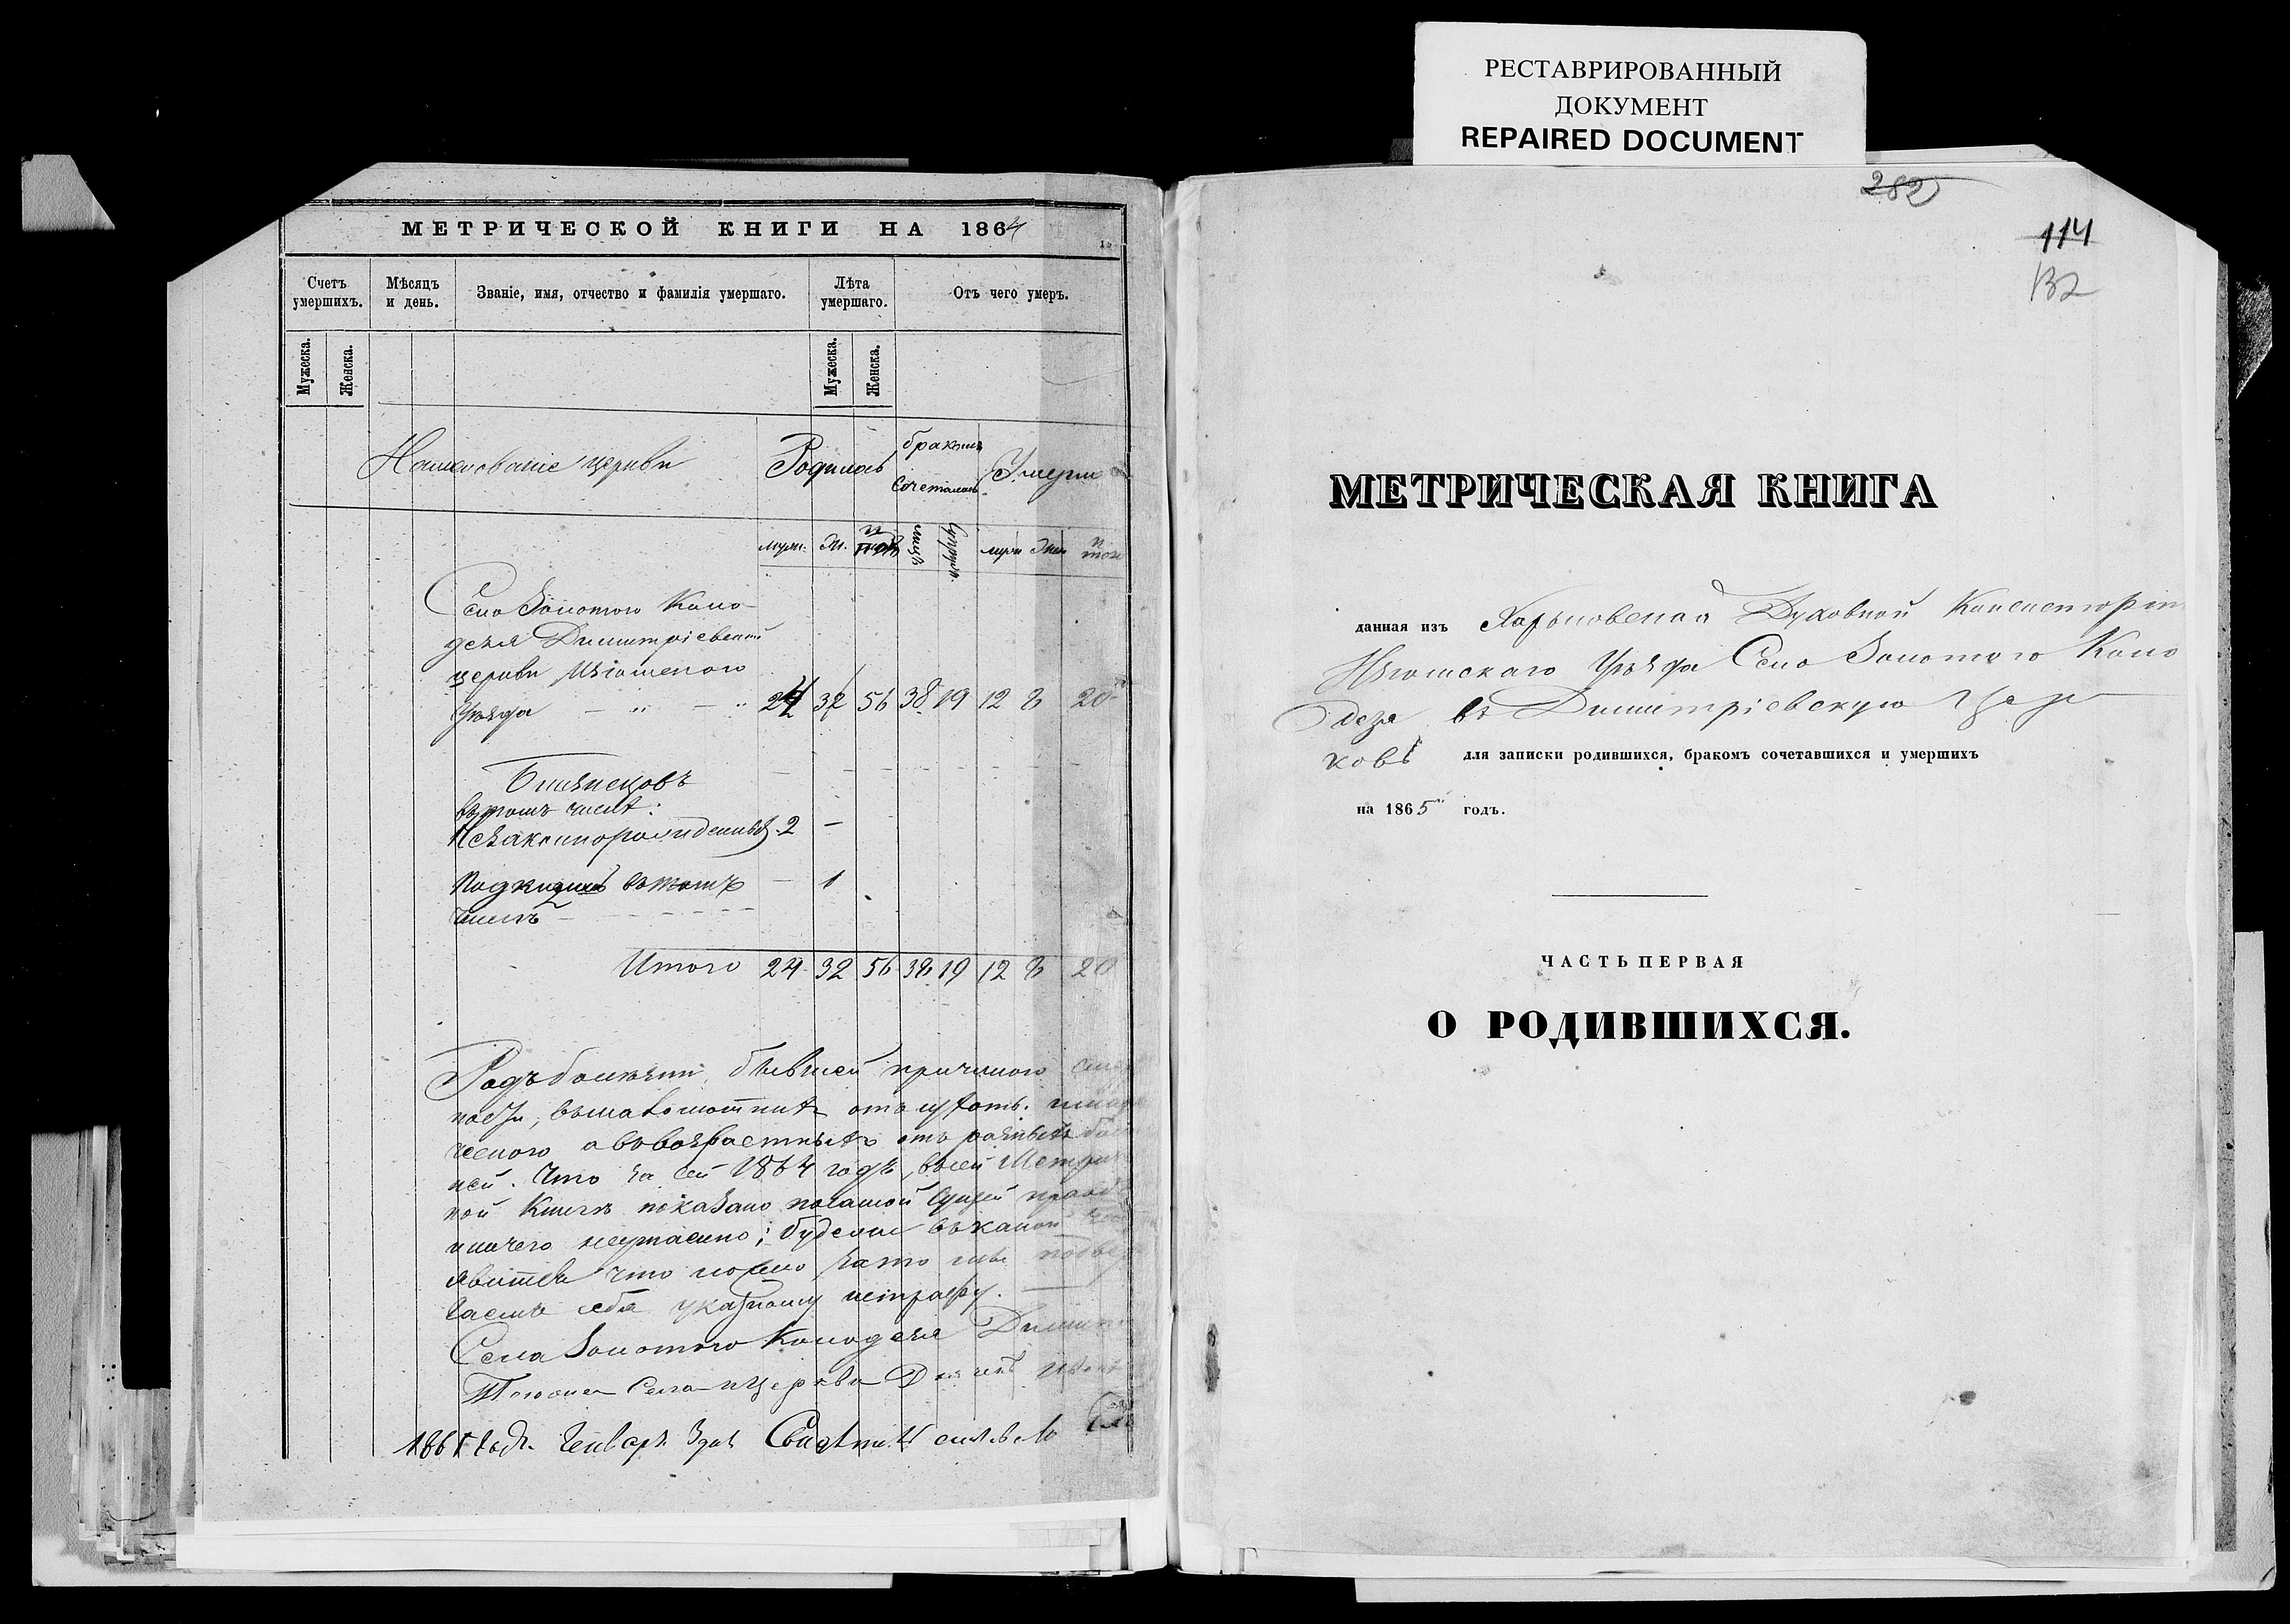 РЕСТАВРИРОВАННЫЙ
ДОКУМЕНТ
REPAIRED DOCUMENT
МЕТРИЧЕСКОЙ КНИГИ НА 1864
Счетъ умершихъ.
Мѣсяцъ и день.
Званіе, имя, отчество и фамилія умершаго.
Лѣта умершаго.
Отъ чего умеръ.
Мужеска.
Женска.
Мужеска.
Женска.
Наименованіе церкви
Родилось
бракомъ
Сочеталось
Умерло
муж. Ж.
лицъ
супруж.
муж Жен
Село Золотого Коло-
дезя Димитріевской
церкви Изюмского
Уѣзда 24 32 56 38 19 12 8 20
въ томъ числѣ:
Незаконнорожденныхъ 2 –
Подкидышъ въ томъ – 1
числѣ
Итого 24 32 56 38 19 12 8 20
Родъ болѣзни, бывшей причиною
въ малолѣтнихъ отъ
ческого а въ возрастныхъ отъ разныхъ
ней. Что за сей 1864 годъ, въ сей
ной Книгѣ показано по самой сущей
ничего неутаено; буде же въ какой
явится что ложно, за то мы
гаемъ себя указному штрафу.
Села Золотого Колодезя
Тогожъ Села и Церкви
1865 года Генваря 3 дня
282
114
132
МЕТРИЧЕСКАЯ КНИГА
данная изъ Харьковской Духовной Консисторіи
Изюмскаго Уѣзда Село Золотого Коло
дезя въ Димитріевскую Цер
ковь для записки родившихся, бракомъ сочетавшихся и умершихъ
на 1865 годъ.
ЧАСТЬ ПЕРВАЯ
О РОДИВШИХСЯ.